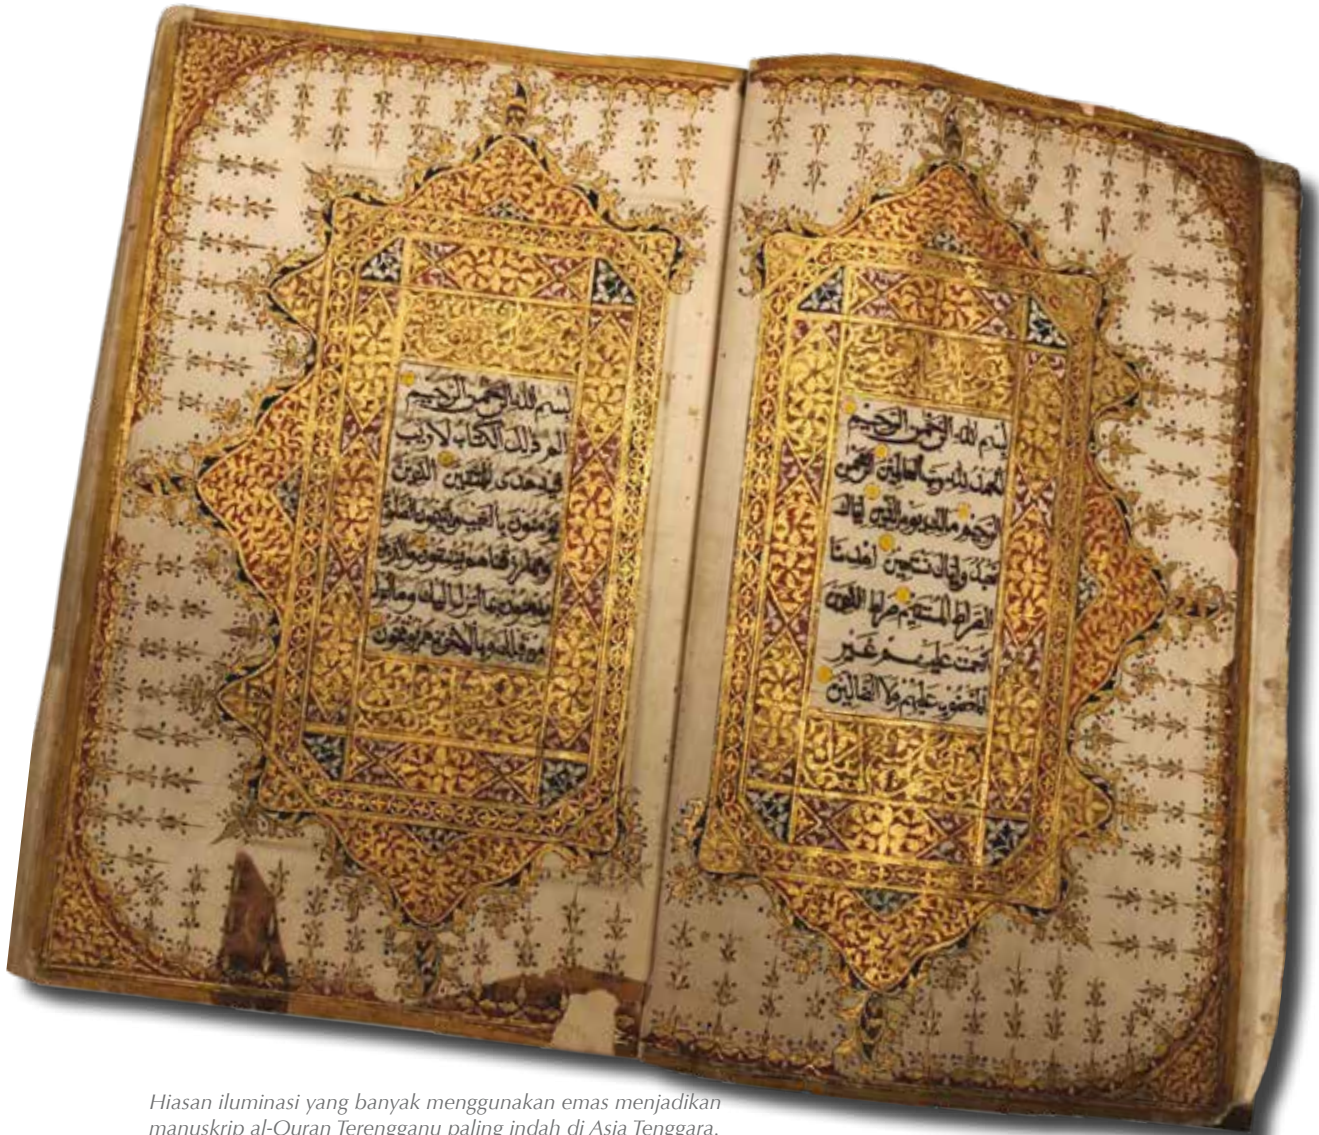 بسم الله الرحمن الرحيم
الحمد لله رب العالمين الرحمن
الرحيم مالك يوم الدين اياك
نعبد واياك نستعين اهدنا
الصراط المستقيم صراط الذين
انعمت عليهم غير
المغضوب عليهم ولا الضالين
بسم الله الرحمن الرحيم
الم ذلك الكتاب لا ريب
فيه هدى للمتقين الذين
يؤمنون بالغيب ويقيمون الصلوة
ومما رزقناهم ينفقون والذين
يؤمنون بما انزل اليك وما انزل
من قبلك وبالاخرة هم يوقنون
Hiasan iluminasi yang banyak menggunakan emas menjadikan
manuskrip al-Quran Terengganu paling indah di Asia Tenggara.